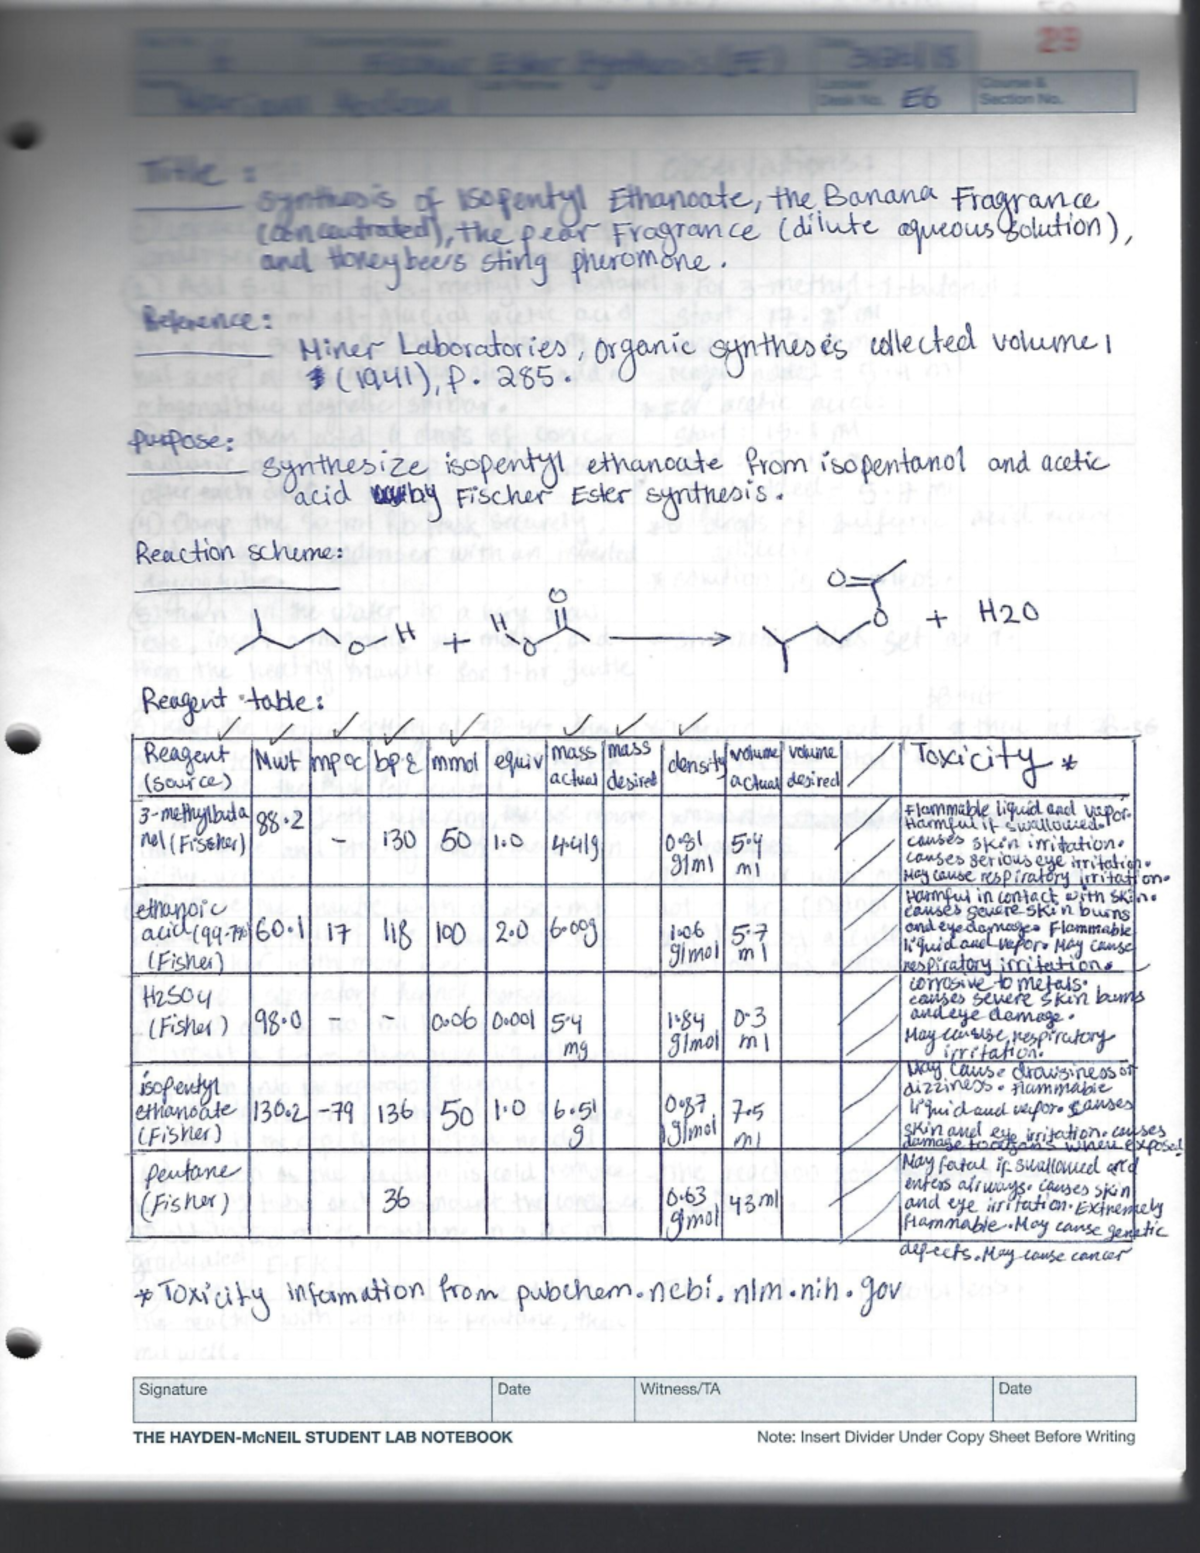 29
Fischer Ester Synthesis (FE)
Locker/
Desk No. E6
Course &
Section No.
Title:
Synthesis of Isopentyl Ethanoate, the Banana Fragrance
(concentrated), the pear Fragrance (dilute aqueous solution),
and Honeybee's sting pheromone.
Reference:
Miner Laboratories, Organic syntheses collected volume 1
(1941), P. 285.
purpose:
synthesize isopentyl ethanoate from isopentanol and acetic
acid by Fischer Ester synthesis.
Reaction scheme:
O H + H O O → O O + H2O
Reagent table:
Reagent (source) Mwt mp °C bp °C mmol equiv mass actual mass desired density volume actual volume desired Toxicity *
3-methylbutanol (Fischer) 88.2 - 130 50 1.0 4.41g 0.81 g/ml 5.4 ml
Flammable liquid and vapor.
Harmful if swallowed.
causes skin irritation.
causes serious eye irritation.
May cause respiratory irritation.
ethanoic acid (99.7%) (Fisher) 60.1 17 118 100 2.0 6.00g 1.06 g/mol 5.7 ml
Harmful in contact with skin.
causes severe skin burns
and eye damage. Flammable
liquid and vapor. May cause
respiratory irritation.
H2SO4 (Fisher) 98.0 - - 0.06 0.001 5.4 mg 1.84 g/mol 0.3 ml
corrosive to metals.
causes severe skin burns
and eye damage.
May cause respiratory
irritation.
isopentyl ethanoate (Fisher) 130.2 -79 136 50 1.0 6.51 g 0.87 g/mol 7.5 ml
May cause drowsiness or
dizziness. flammable
liquid and vapor. causes
skin and eye irritation. causes
damage to organs when exposed
pentane (Fisher) 36 0.63 g/mol 43 ml
May fatal if swallowed and
enters airways. causes skin
and eye irritation. Extremely
flammable. May cause genetic
defects. May cause cancer
* Toxicity information from pubchem.ncbi.nlm.nih.gov
Signature Date Witness/TA Date
THE HAYDEN-McNEIL STUDENT LAB NOTEBOOK Note: Insert Divider Under Copy Sheet Before Writing